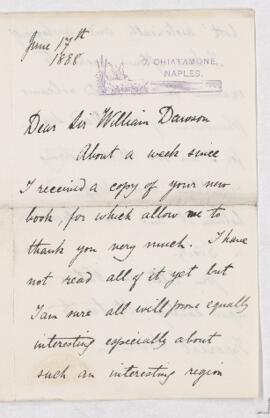 June 17th
1888
7, CHIATAMONE,
NAPLES.
Dear Sir William Dawson
About a week since
I received a copy of your new
book, for which allow me to
thank you very much. I have
not read all of it yet but
I am sure all will prove equally
interesting especially about
such an interesting region